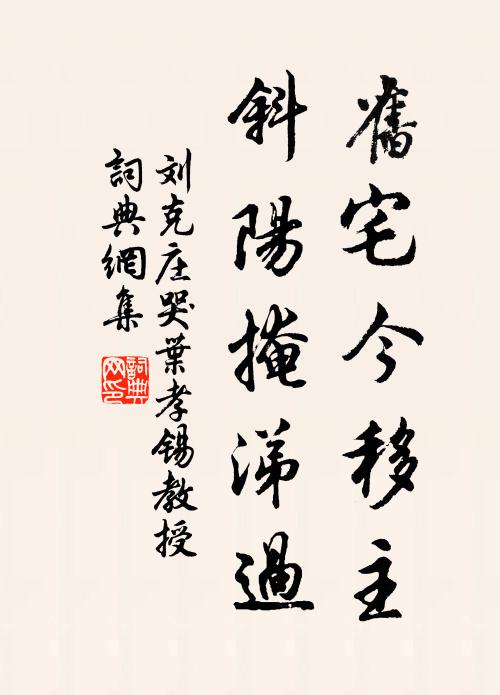 舊宅今移主
斜陽掩涕過
刘克庄哭葉孝锡教授
詞典網集
詞典网印